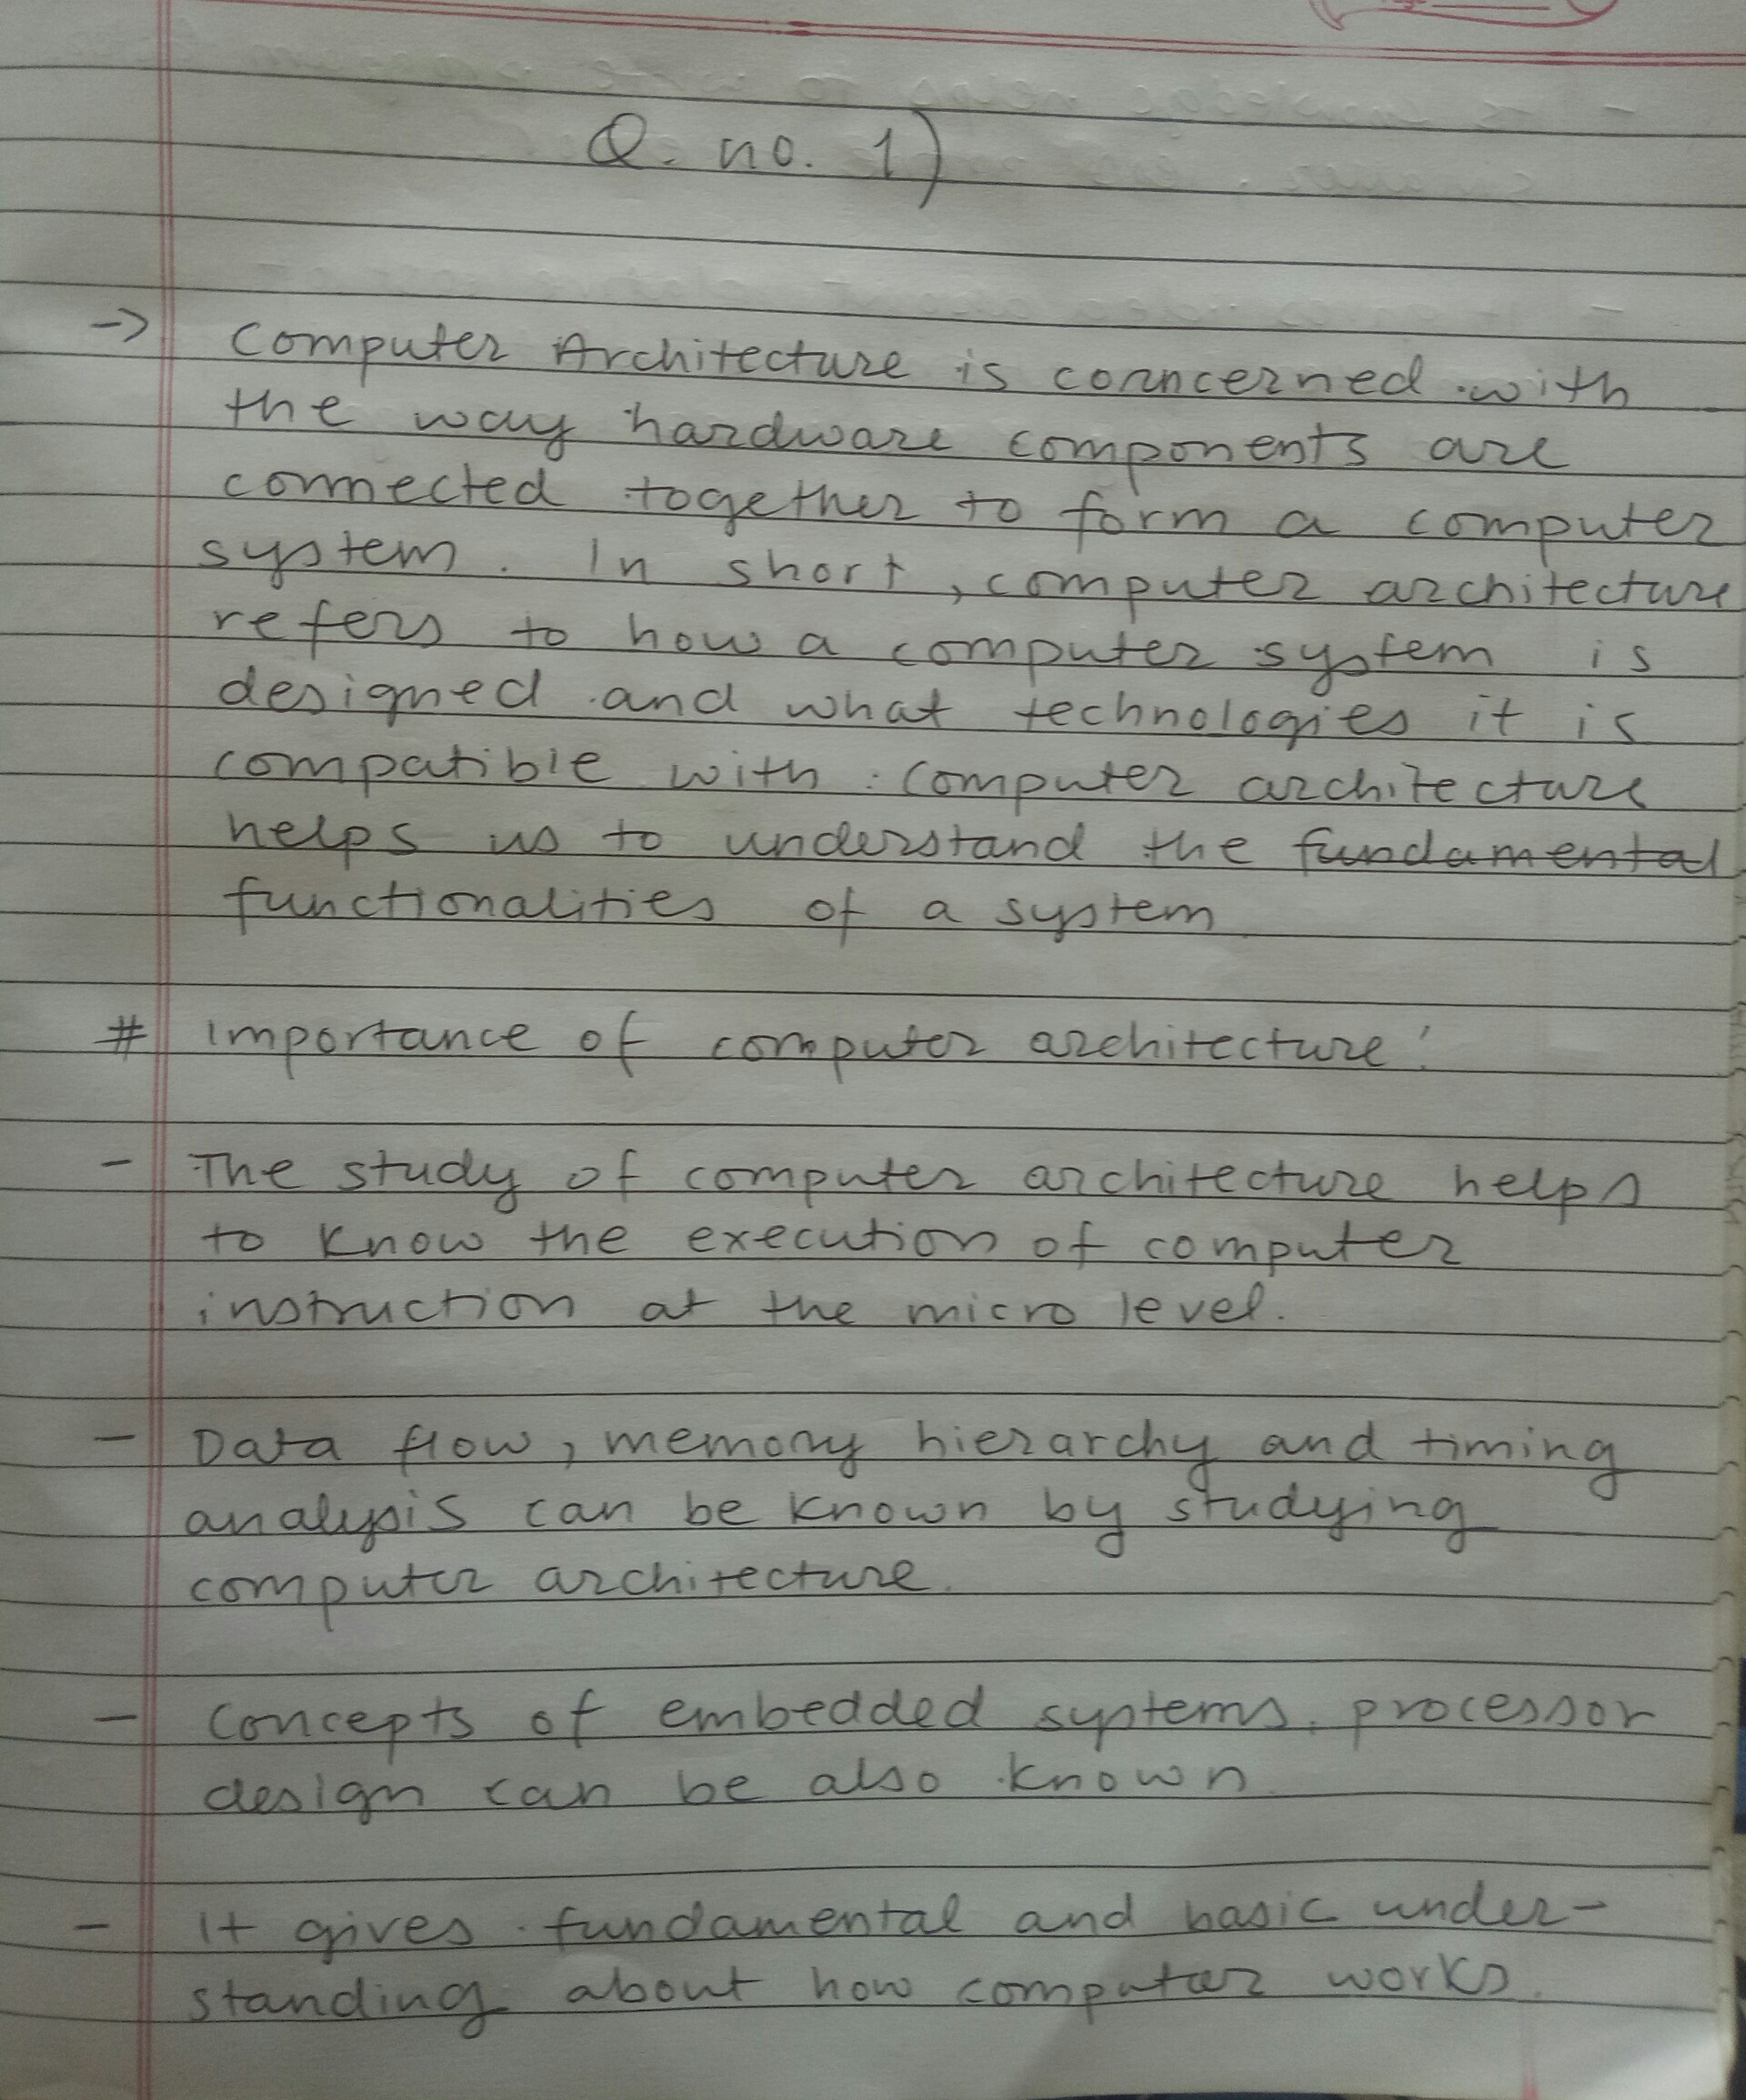 Q. no. 1)
-> Computer Architecture is conncerned with
the way hardware components are
connected together to form a computer
system. In short, computer architecture
refers to how a computer system is
designed and what technologies it is
compatible with. Computer architecture
helps us to understand the fundamental
functionalities of a system
# Importance of computer architecture:
- The study of computer architecture helps
to know the execution of computer
instruction at the micro level.
- Data flow, memory hierarchy and timing
analysis can be known by studying
computer architecture.
- Concepts of embedded systems, processor
design can be also known
- It gives fundamental and basic under-
standing about how computer works.